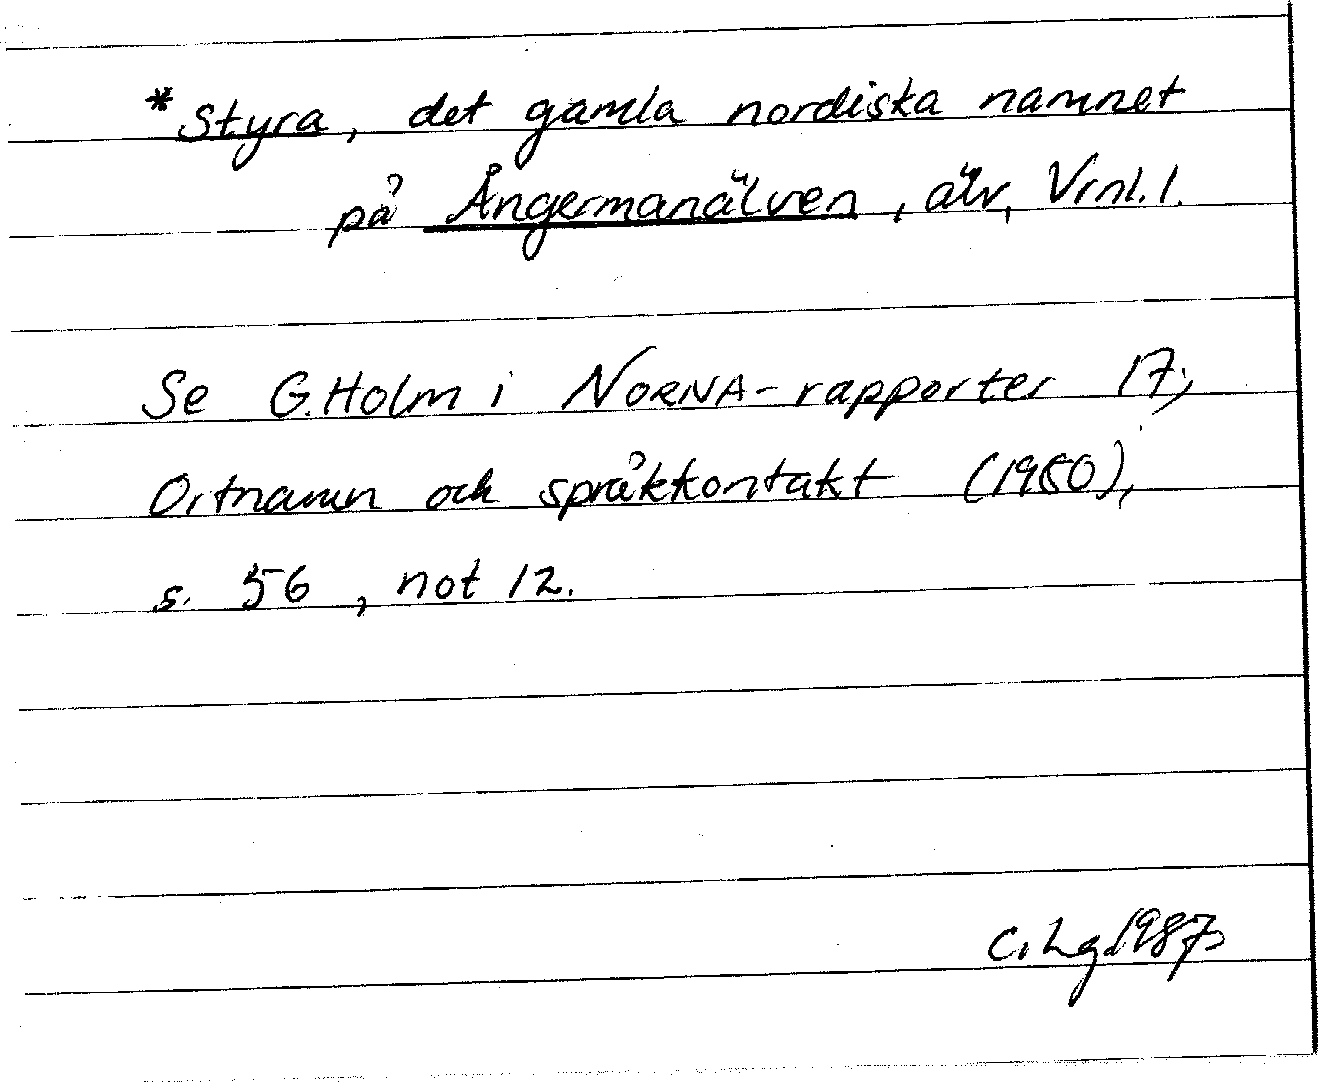 *Styra, det gamla nordiska namnet
på Ångermanälven, älv, Vrnl. l.
Se G. Holm i NORNA-rapporter 17;
Ortnamn och språkkontakt (1980),
s. 56, not 12.
C. Lg. 1987